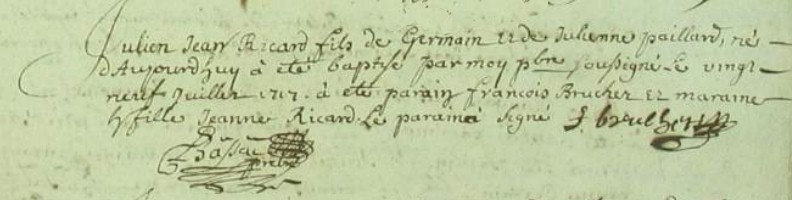 Julien Jean Ricard fils de Germain et de Julienne paillard, né
d'Aujourd'huy à été baptisé par moy pbre soussigné le vingt
neuf Juillet 1717. à été parain francois Brucher et maraine
fille Jeanne Ricard. Le parain à signé f brulher
prebre